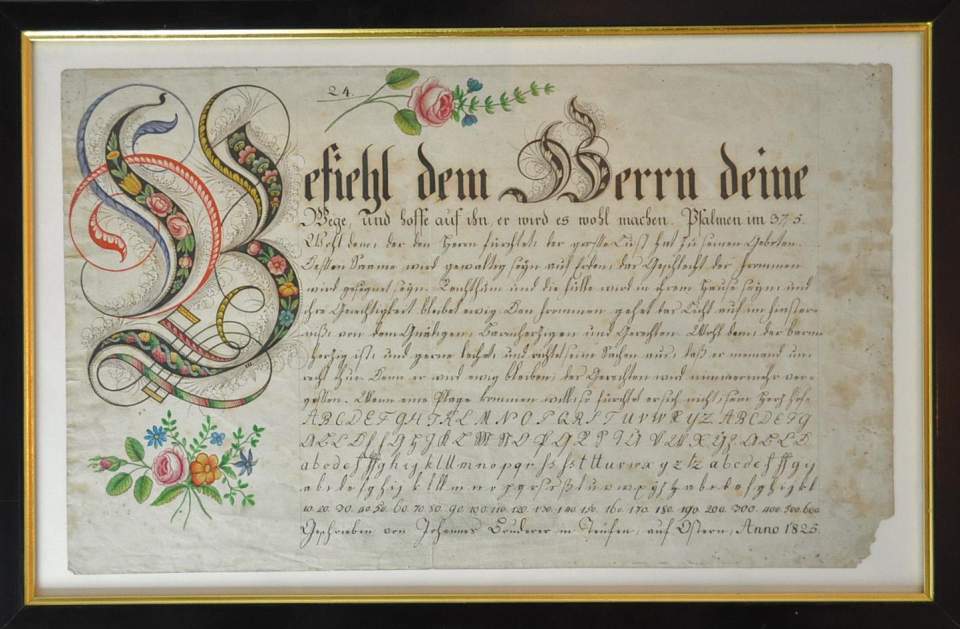 24.
Befiehl dem Herrn deine
Wege, und hoffe auf ihn, er wird es wohl machen, Psalmen im 37.5.
Wohl dem, der den Herrn fürchtet, der grosse Lust hat zu seinen Geboten.
Dessen Saame wird gewaltig seÿn auf Erden, das Geschlecht der Frommen
wird gesegnet seÿn. Reichthum und die Fülle wird in ihrem Hause seÿn, und
ihre Gerechtigkeit bleibet ewig. Den Frommen gehet das Licht auf im Finster-
niß, von dem Gnädigen, Barmherzigen und Gerechten. Wohl dem, der barm-
herzig ist, und gerne leihet, und richtet seine Sachen aus, daß er niemand un-
recht thue. Denn er wird ewig bleiben, des Gerechten wird nimmermehr ver-
gessen. Wenn eine Plage kommen will, so fürchtet er sich nicht, sein Herz hoffe
A B C D E F G H I K L M N O P Q R S T U V W X Y Z A B C D E F G
A B C D E F G H J K L M N O P Q R S T U V W X Y Z A B C D
a b c d e f ff g h i j k l ll m n o p q r s t u v w x y z tz a b c d e f ff g y
a b c d e f g h i j k l ll m n o p q r s ß t u v w x ÿ z a b c d e f g h i j k l
10. 20. 30. 40. 50. 60. 70. 80. 90. 100. 110. 120. 130. 140. 150. 160. 170. 180. 190. 200. 300. 400. 500. 600
Geschrieben von Johannes Bruderer in Teufen, auf Ostern, Anno 1825.